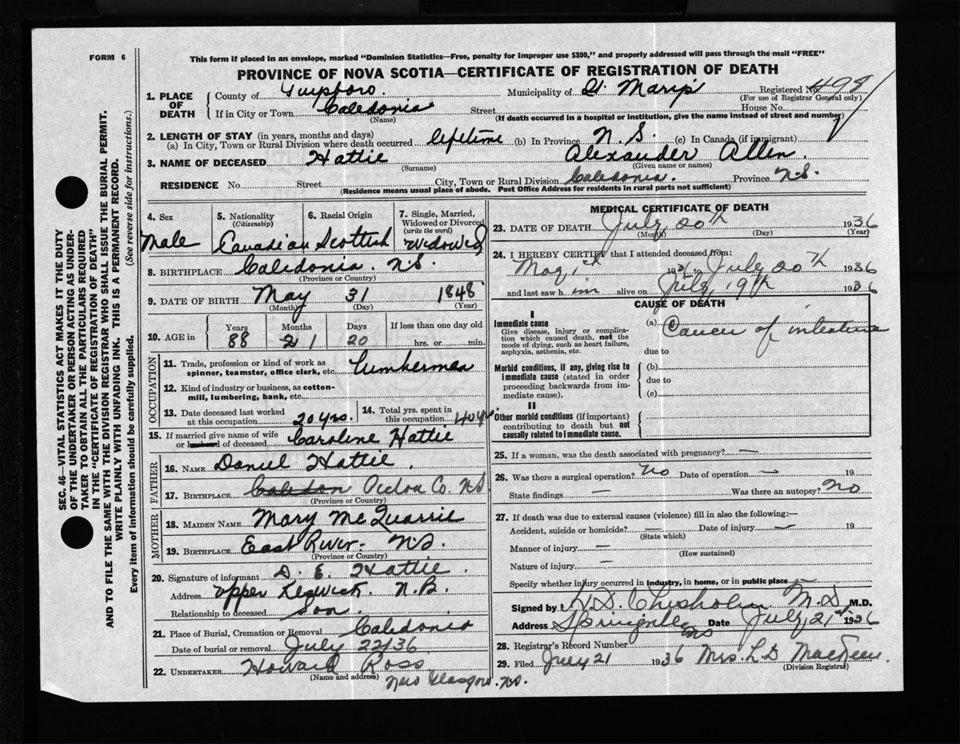 FORM 6
This form if placed in an envelope, marked "Dominion Statistics—Free, penalty for improper use $300," and properly addressed will pass through the mail "FREE"
PROVINCE OF NOVA SCOTIA—CERTIFICATE OF REGISTRATION OF DEATH
1. PLACE OF DEATH County of Municipality of St. Marys Registered No.
(For use of Registrar General only)
If in City or Town Caledonia Street House No.
(Name) (If death occurred in a hospital or institution, give the name instead of street and number)
2. LENGTH OF STAY (in years, months and days)
(a) In City, Town or Rural Division where death occurred lifetime (b) In Province N.S. (c) In Canada (if immigrant)
3. NAME OF DECEASED Hattie Alexander Allen
(Surname) (Given name or names)
RESIDENCE No. Street City, Town or Rural Division Caledonia. Province N.S.
(Residence means usual place of abode. Post Office Address for residents in rural parts not sufficient)
4. Sex Male
5. Nationality (Citizenship) Canadian
6. Racial Origin Scottish
7. Single, Married, Widowed or Divorced (write the word) Widowed
8. BIRTHPLACE Caledonia. N.S.
(Province or Country)
9. DATE OF BIRTH May 31 1848
(Month) (Day) (Year)
10. AGE in Years 88 Months 1 Days 20 If less than one day old hrs. or min.
OCCUPATION
11. Trade, profession or kind of work as spinner, teamster, office clerk, etc. Lumberman
12. Kind of industry or business, as cotton-mill, lumbering, bank, etc.
13. Date deceased last worked at this occupation 20 yrs. 14. Total yrs. spent in this occupation 40 yrs.
15. If married give name of wife or husband of deceased Caroline Hattie
FATHER
16. NAME Daniel Hattie.
17. BIRTHPLACE Pictou Co. N.S.
(Province or Country)
MOTHER
18. MAIDEN NAME Mary McQuarrie
19. BIRTHPLACE East River. N.S.
(Province or Country)
20. Signature of informant D. E. Hattie.
Address Upper Keswick. N.B.
Relationship to deceased Son.
21. Place of Burial, Cremation or Removal Caledonia
Date of burial or removal July 22/36
22. UNDERTAKER Howard Ross
(Name and address) New Glasgow. N.S.
MEDICAL CERTIFICATE OF DEATH
23. DATE OF DEATH July 20th 1936
(Month) (Day) (Year)
24. I HEREBY CERTIFY that I attended deceased from:
193 to July 20th 1936
and last saw him alive on July 19th 1936
CAUSE OF DEATH
I
Immediate cause (a) Cancer of intestine
Give disease, injury or complication which caused death, not the mode of dying, such as heart failure, asphyxia, asthenia, etc.
due to
Morbid conditions, if any, giving rise to immediate cause (stated in order proceeding backwards from immediate cause).
(b)
due to
(c)
II
Other morbid conditions (if important) contributing to death but not causally related to immediate cause.
25. If a woman, was the death associated with pregnancy? —
26. Was there a surgical operation? No Date of operation — 19
State findings — Was there an autopsy? No
27. If death was due to external causes (violence) fill in also the following:—
Accident, suicide or homicide? — Date of injury — 19
(State which)
Manner of injury —
(How sustained)
Nature of injury —
Specify whether injury occurred in industry, in home, or in public place —
Signed by Chisholm M.D. M.D.
Address Date July, 21st 1936
28. Registrar's Record Number
29. Filed July 21 1936 Mrs. L D
(Division Registrar)
SEC. 46—VITAL STATISTICS ACT MAKES IT THE DUTY
OF THE UNDERTAKER OR PERSON ACTING AS UNDER-
TAKER TO OBTAIN ALL THE PARTICULARS REQUIRED
IN THE "CERTIFICATE OF REGISTRATION OF DEATH"
AND TO FILE THE SAME WITH THE DIVISION REGISTRAR WHO SHALL ISSUE THE BURIAL PERMIT.
WRITE PLAINLY WITH UNFADING INK. THIS IS A PERMANENT RECORD.
Every item of information should be carefully supplied. (See reverse side for instructions.)